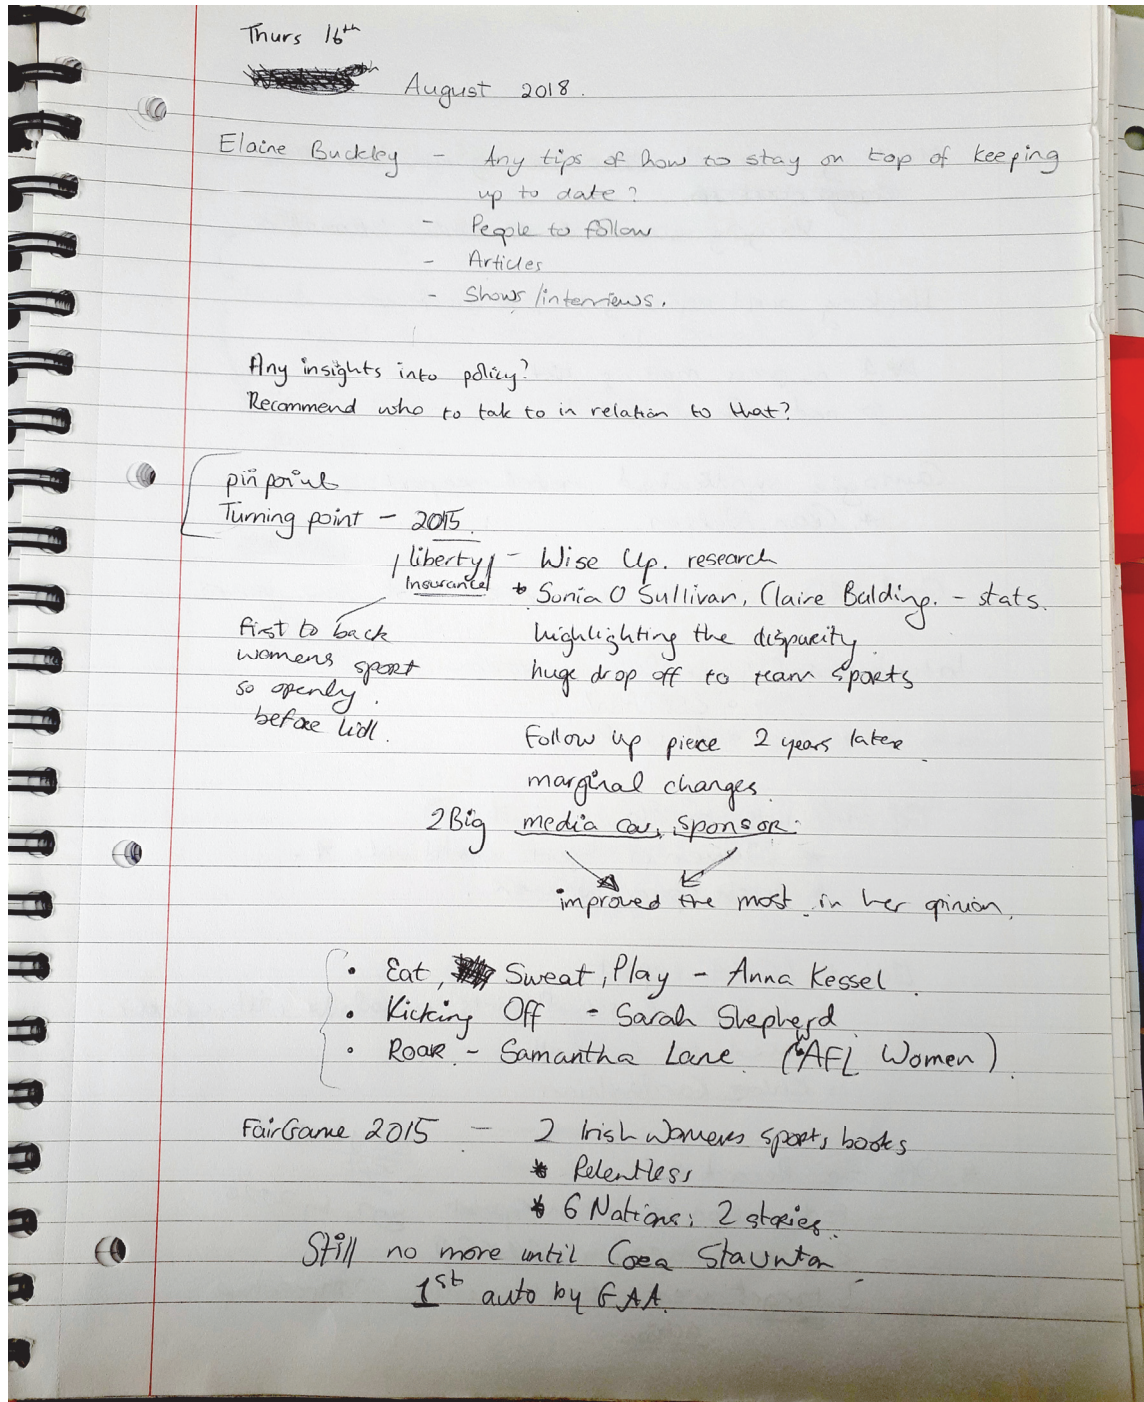 Thurs 16th
August 2018.
Elaine Buckley - Any tips of how to stay on top of keeping
up to date?
- People to follow
- Articles
- Shows/interviews.
Any insights into policy?
Recommend who to talk to in relation to that?
pin point
Turning point - 2015.
liberty - Wise Up. research
Insurance * Sonia O Sullivan, Claire Balding. - stats.
first to back
womens sport
so openly.
before lidl.
highlighting the disparity.
huge drop off to team sports
Follow up piece 2 years later.
marginal changes.
2 Big media cov, sponsor.
improved the most in her opinion.
• Eat, Sweat, Play - Anna Kessel.
• Kicking Off - Sarah Shepherd
• Roar. - Samantha Lane. (AFL Women).
FairGame 2015 - 2 Irish womens sports books
* Relentless
* 6 Nations, 2 stories.
Still no more until Cora Staunton
1st auto by GAA.